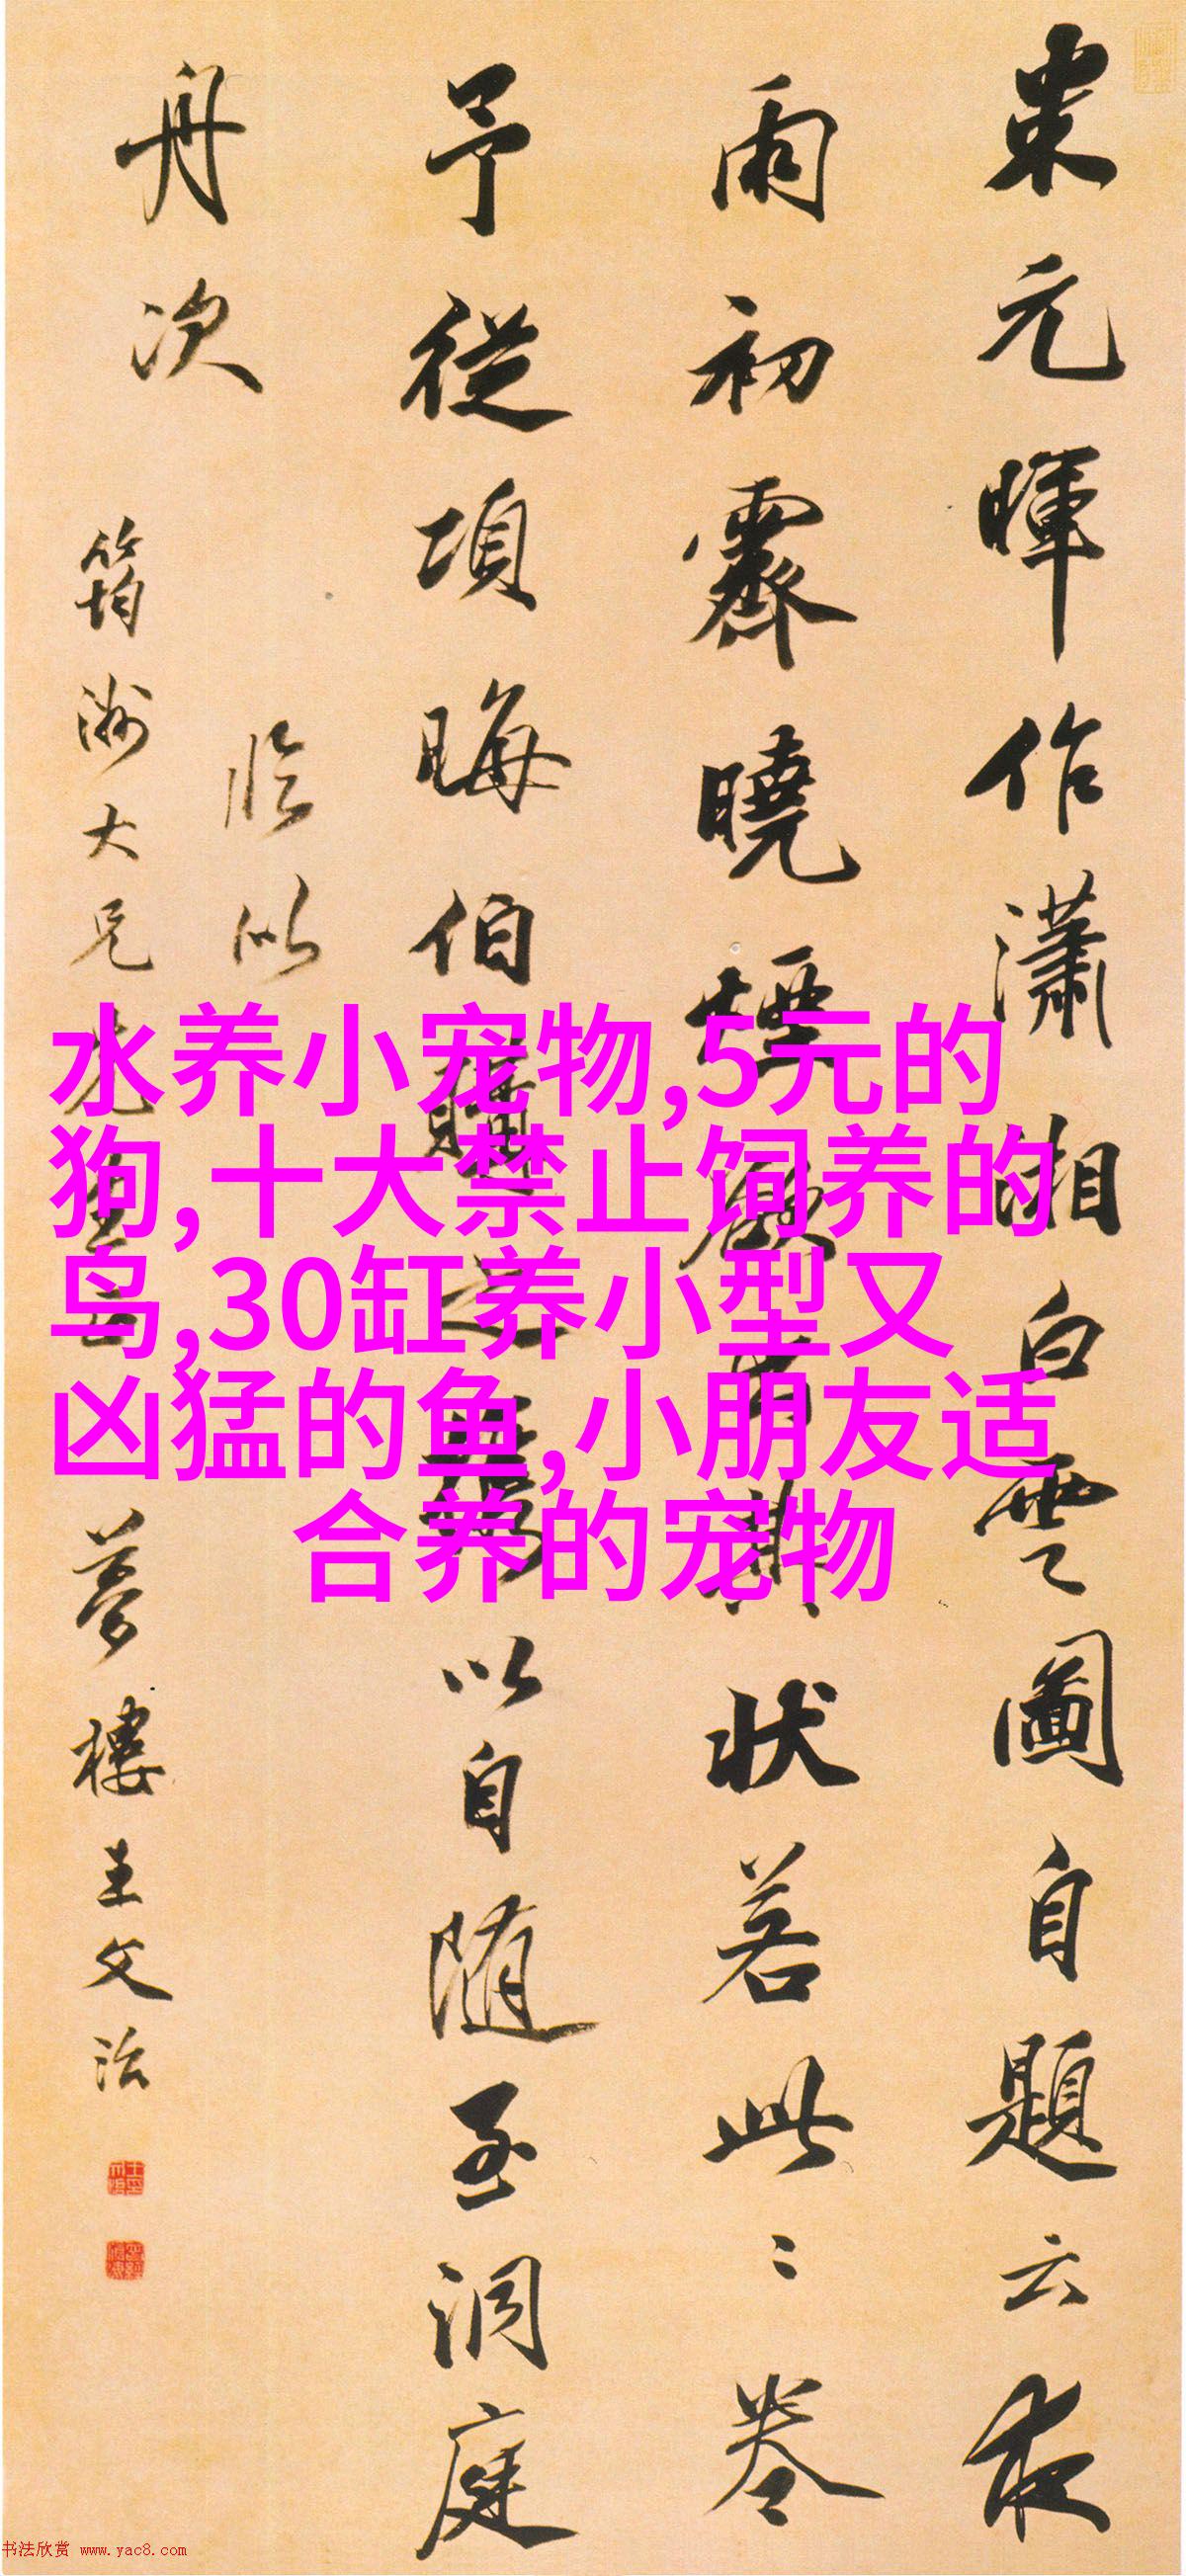 米元暉作瀟湘白雲圖自題云夜
雨初霽曉煙
狀若此〻卷
予從項晦伯購
以自隨至洞庭
舟次
臨以
筠洲大兄
夢樓王文治
水养小宠物,5元的
狗,十大禁止饲养的
鸟,30缸养小型又
凶猛的鱼,小朋友适
合养的宠物
书法欣赏 www.yac8.com